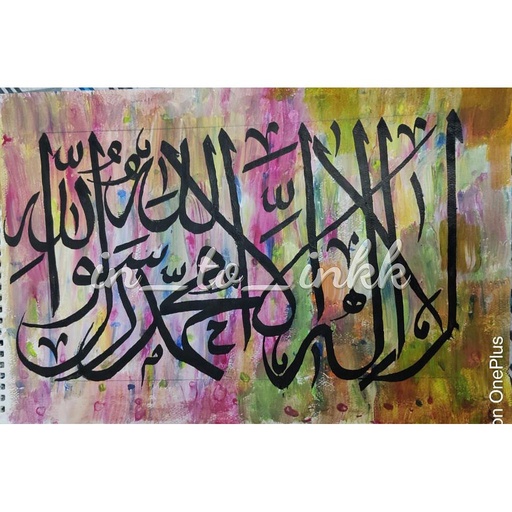 لا إله إلا الله محمد رسول الله
in_to_inkk
on OnePlus